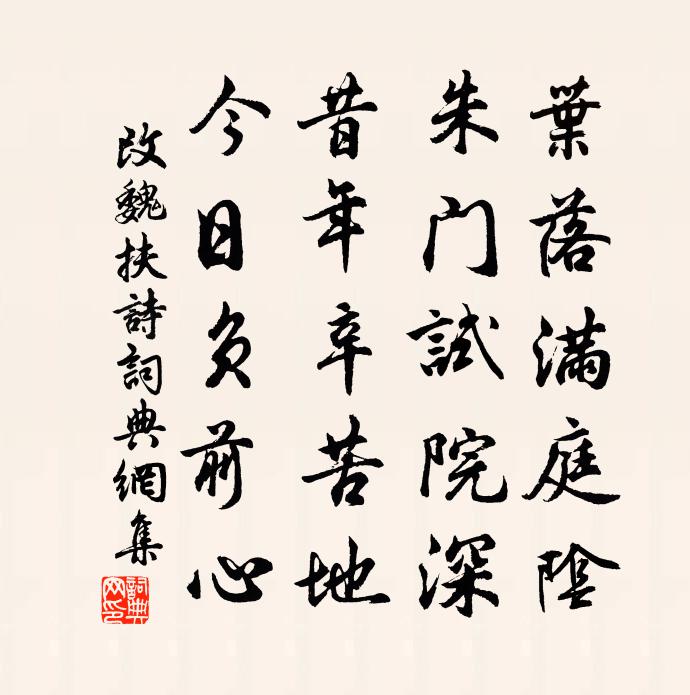 葉落滿庭陰
朱门試院深
昔年辛苦地
今日負前心
改魏扶詩詞典網集
詞典網印